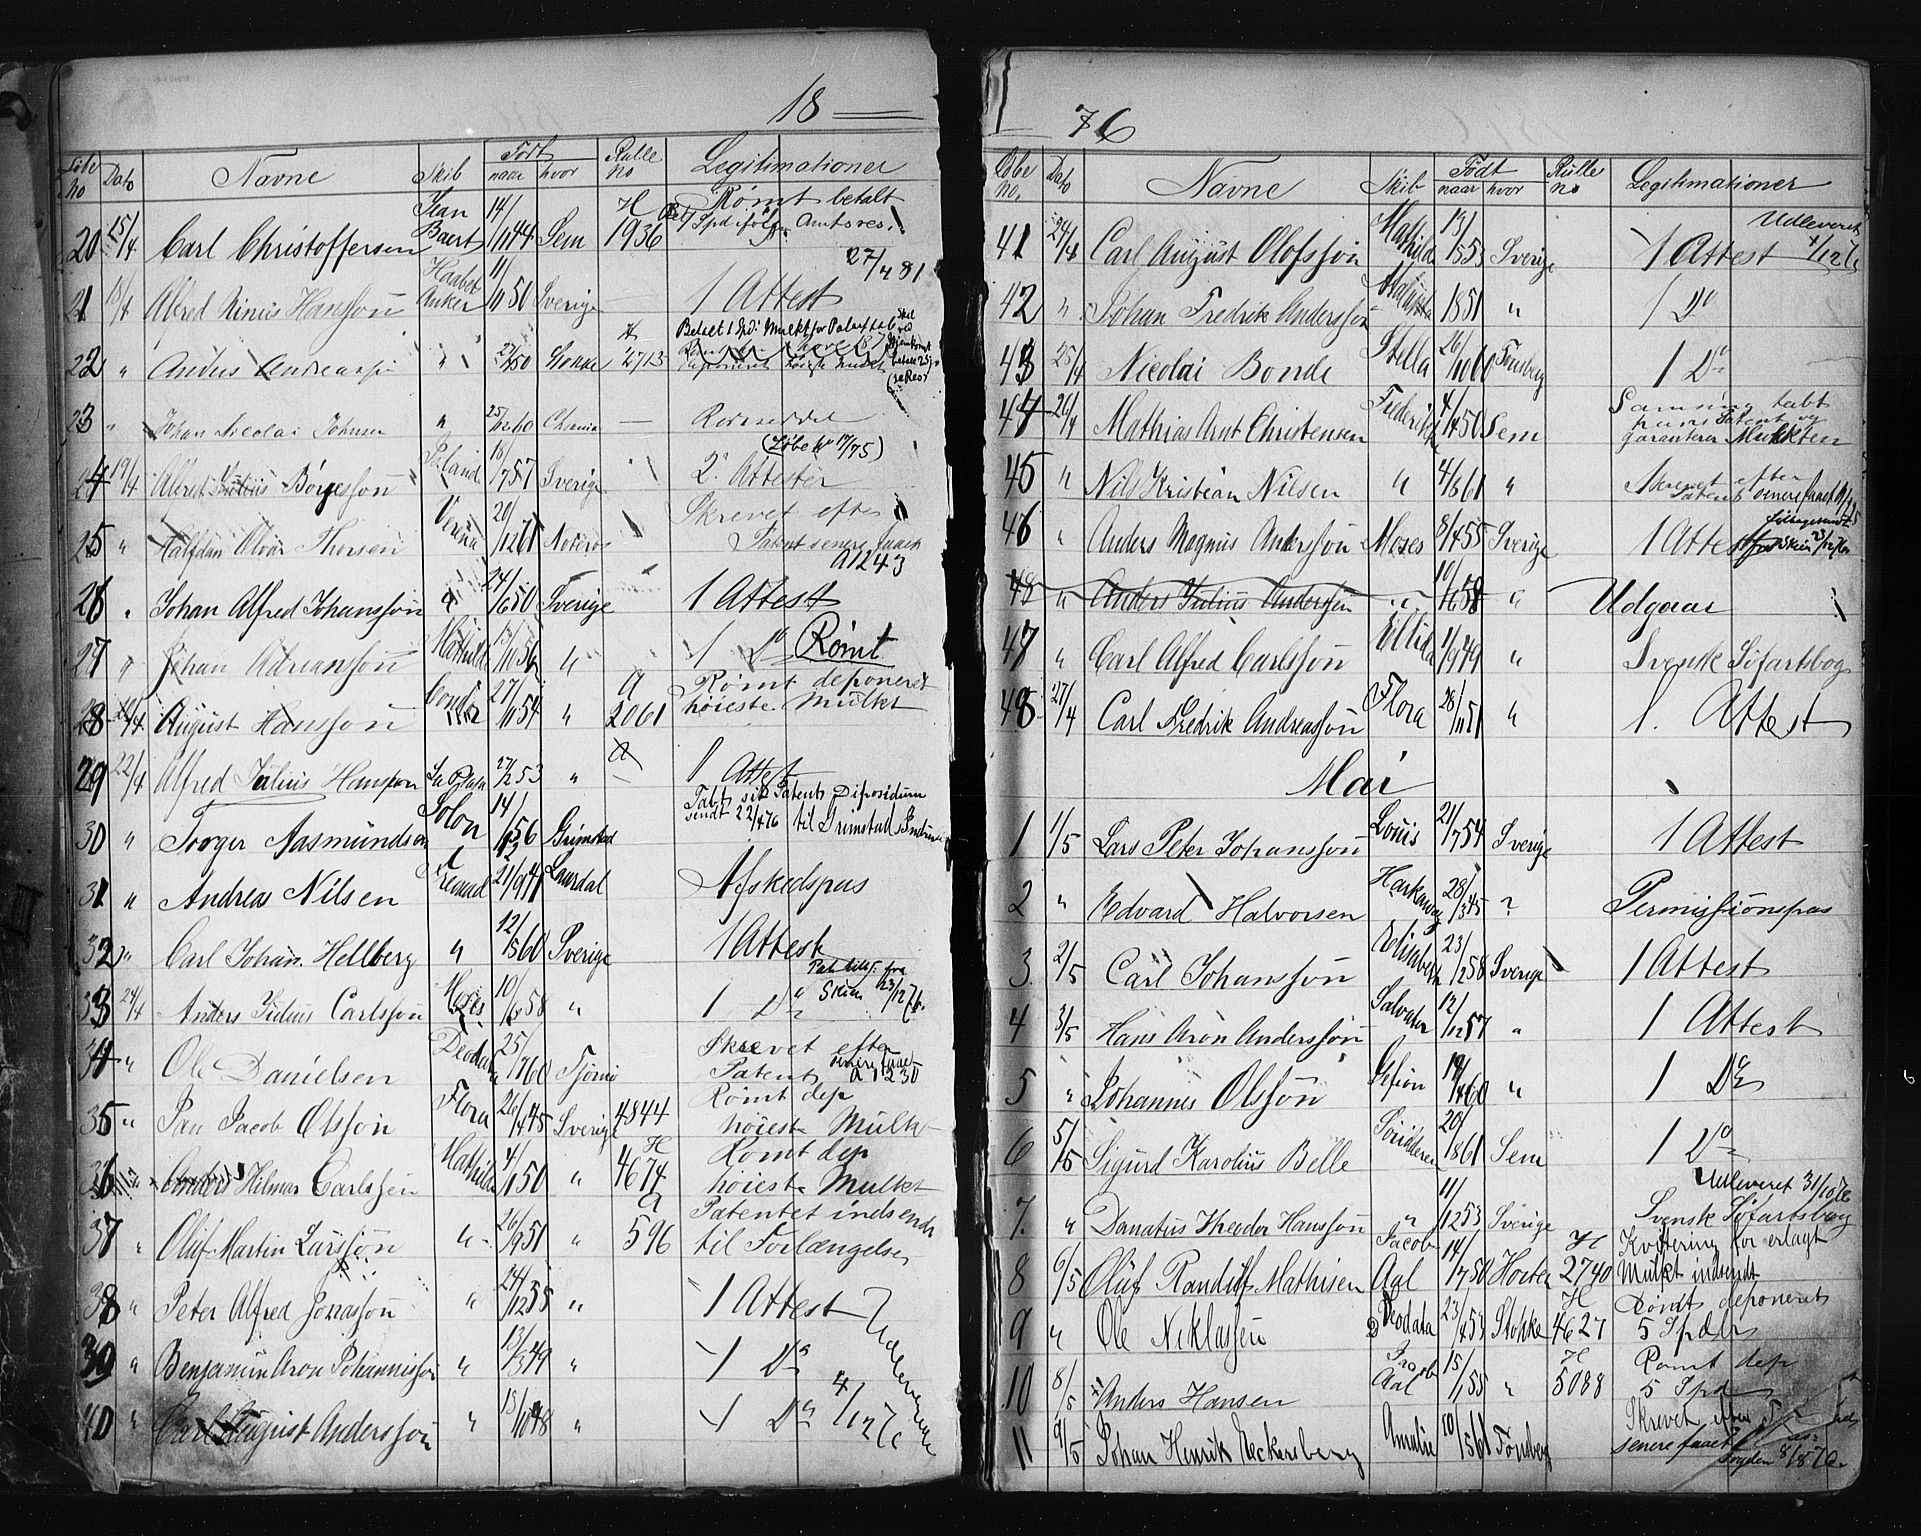 18
Løbe No Dato Navne Skib Født naar hvor Rulle No Legitimationer
20 15/4 Carl Christoffersen Jean Baert 14/11 44 Sem H 1936 Rømt betalt
1 Spd ifølge Amtsres. 27/4 81
21 18/4 Alfred Rinius Hansson Haabets Anker 11/11 50 Sverige — 1 Attest
22 " Anders Andreassen " 27/ 50 Stokke 2713 Betalt 1 Spd i Mulkt for
høieste Mulkt
23 " Johan Nicolai Johnsen " 25/12 60 —
24 19/4 Alfred Julius Börgesson 18/7 57 Sverige (Løbe No 17/75)
2 Attester
25 " Halfdan Olvar Thorsen Verena 20/12 61 Nøterø Skrevet efter
Patent senere faaet
A 1243
26 " Johan Alfred Johansson " 24/6 50 Sverige 1 Attest
27 " Johan Adriansson Mathilde 13/10 56 " 1 Do Rømt
28 20/4 August Hansson Condor 27/11 54 " A 2061 Rømt deponeret
høieste Mulkt
29 22/4 Alfred Julius Hansson La Plata 27/2 53 " — 1 Attest
30 " Torger Aasmundsen Solon 14/ 56 Grimstad Tabt sit Patent
sendt 22/4 76 til Grimstad
31 " Andreas Nilsen 21/9 41 Laurdal Afskedspas
32 " Carl Johan Hellberg " 12/5 60 Sverige 1 Attest
33 24/4 Anders Julius Carlsson Moses 10/6 58 " 1 Do
Skien 23/12 76.
34 " Ole Danielsen Deodata 25/7 60 Tjømø Skrevet efter
Patent senere faaet A 1230
35 " Jan Jacob Olsson Flora 26/4 45 Sverige 4844 Rømt dep
høieste Mulkt
36 " Anders Hilmar Carlsson Mathilde 4/11 50 " H 4674 Rømt dep
høieste Mulkt
37 " Oluf Martin Larsson " 26/9 51 " A 596 Patentet indsendt
til Forlængelse
38 " Peter Alfred Jonasson " 24/12 55 " 1 Attest
39 " Benjamin Aron Johannisson " 13/3 49 " 1 Do
40 " Carl August Andersson " 13/10 48 " 1 Do
Udleverede 4/12 76
76
Løbe No. Dato Navne Skib Født naar hvor Rulle No Legitimationer
41 24/4 Carl August Olofsson Mathilde 19/1 53 Sverige 1 Attest Udleveret 4/12 76
42 " Johan Fredrik Andersson Augusta 1851 " 1 Do
43 25/4 Nicolai Bonde Stella 26/10 60 Tønsberg 1 Do
44 26/4 Mathias Arnt Christensen 4/4 50 Sem
hans Patent og
garanterer Mulkten
45 " Nils Kristian Nilsen " 4/8 61 " Skrevet efter
Patent senere faaet
46 " Anders Magnus Andersson Moses 8/4 55 Sverige 1 Attest
Skien 23/12 76
48 " Anders Julius Andersson " 10/6 58 " Udgaar
47 " Carl Alfred Carlsson Eltida 1/9 49 " Svensk Søfartsbog
48 27/4 Carl Fredrik Andreasson Flora 28/11 51 " 1. Attest
Mai
1 1/5 Lars Peter Johansson Louis 21/7 54 Sverige 1 Attest
2 " Edvard Halvorsen Harkaway 28/3 45 ? Permissionspas
3. 2/5 Carl Johansson Elisabeth 23/12 58 Sverige 1 Attest
4 3/5 Hans Aron Andersson Salvator 12/12 57 " 1 Attest
5 " Johannes Olsson Gefion 19/4 60 " 1 Do
6 5/5 Sigurd Karolius Belle 20/1 861 Sem 1 Do
Udleveret 31/10 76
7. " Danatus Theodor Hansson " 11/12 53 Sverige Svensk Søfartsbog
8 6/5 Oluf Randulf Mathisen Jacob Aal 14/7 50 Horten H 2740 Kvittering for erlagt
Mulkt indsendt
9 " Ole Niklassen Deodata 23/4 53 Stokke H 4627 Rømt deponeret
5 Spdlr
10 8/5 Anders Hansen Jacob Aal 15/1 55 " H 5088 Rømt dep
5 Spd
11 9/5 Johan Henrik Eckersberg Amalie 10/5 61 Tønsberg Skrevet efter
senere faaet
8/8 76